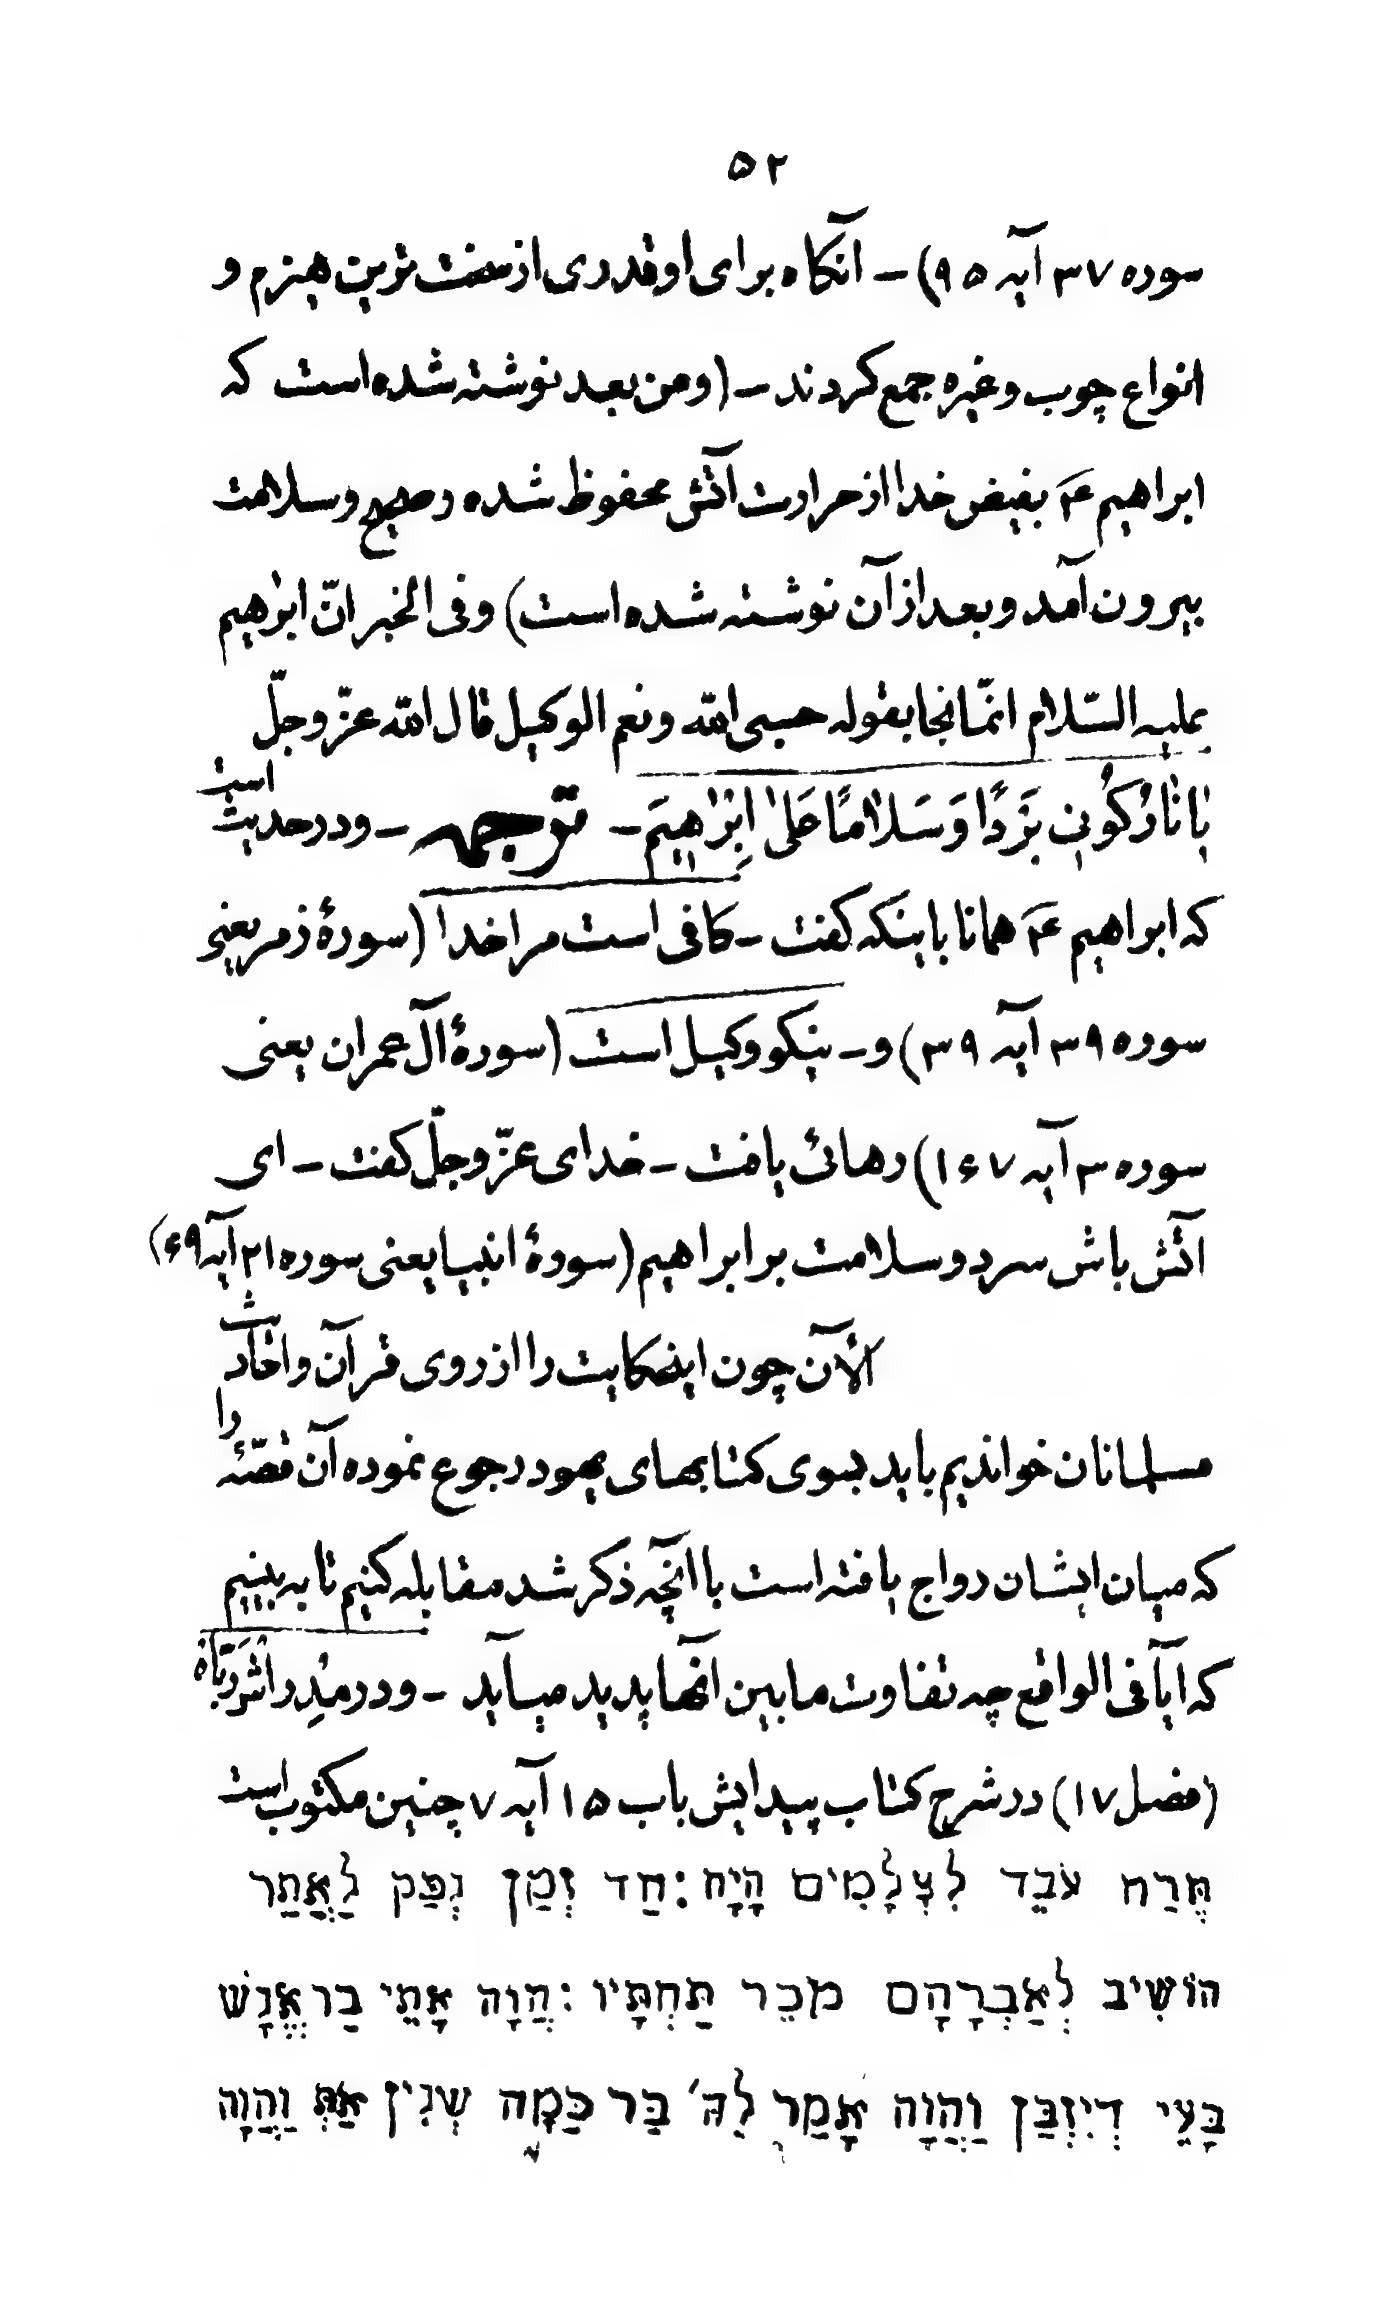 ۵۲
سوره ۳۷ آیه ۹۵) – آنکاه برای او قدری از سخت ترین هیزم و
انواع چوب و غیره جمع کردند – (ومن بعد نوشته شده است که
ابراهیم ع بفیض خدا از حرارت آتش محفوظ شده و صحیح و سلامت
بیرون آمد و بعد از آن نوشته شده است) وفی الخبر انّ ابرٰهیم
علیه السّلام انّما نجا بقوله حسبی الله ونعم الوکیل قال الله عزّ وجلّ
یٰا نٰارُ کُونی بَرْدًا وَسَلٰامًا عَلیٰ اِبْرٰهیمَ – ترجمه – ودر حدیث است
که ابراهیم ع همانا باینکه کفت – کافی است مرا خدا (سورهٔ زمر یعنی
سوره ۳۹ آیه ۳۹) و – نیکو وکیل است (سورهٔ آل عمران یعنی
سوره ۳ آیه ۱۶۷) رهائی یافت – خدای عزّ وجلّ کفت – ای
آتش باش سرد و سلامت بر ابراهیم (سورهٔ انبیا یعنی سوره ۲۱ آیه ۶۹)
الآن چون اینحکایت را از روی قرآن واحادیث
مسلمانان خواندیم باید بسوی کتابهای یهود رجوع نموده آن قصّهٔ را
که میان ایشان رواج یافته است با آنچه ذکر شد مقابله کنیم تا به بینیم
که آیا فی الواقع چه تفاوت ما بین آنها پدید میآید – و در مِدراش رَبّاه
(فصل ۱۷) در شرح کتاب پیدایش باب ۱۵ آیه ۷ چنین مکتوب است
תֶּרַח עֹבֵד לִצְלָמִים הָיָה: חַד זְמַן נְפַק לַאֲתַר
הוֹשִׁיב לְאַבְרָהָם מֹכֵר תַּחְתָּיו: הֲוָה אָתֵי בַר אֱנָשׁ
בָּעֵי דְיִזְבַּן וַהֲוָה אָמַר לֵהּ׳ בַּר כַּמָה שְׁנִין אַתְּ וַהֲוָה